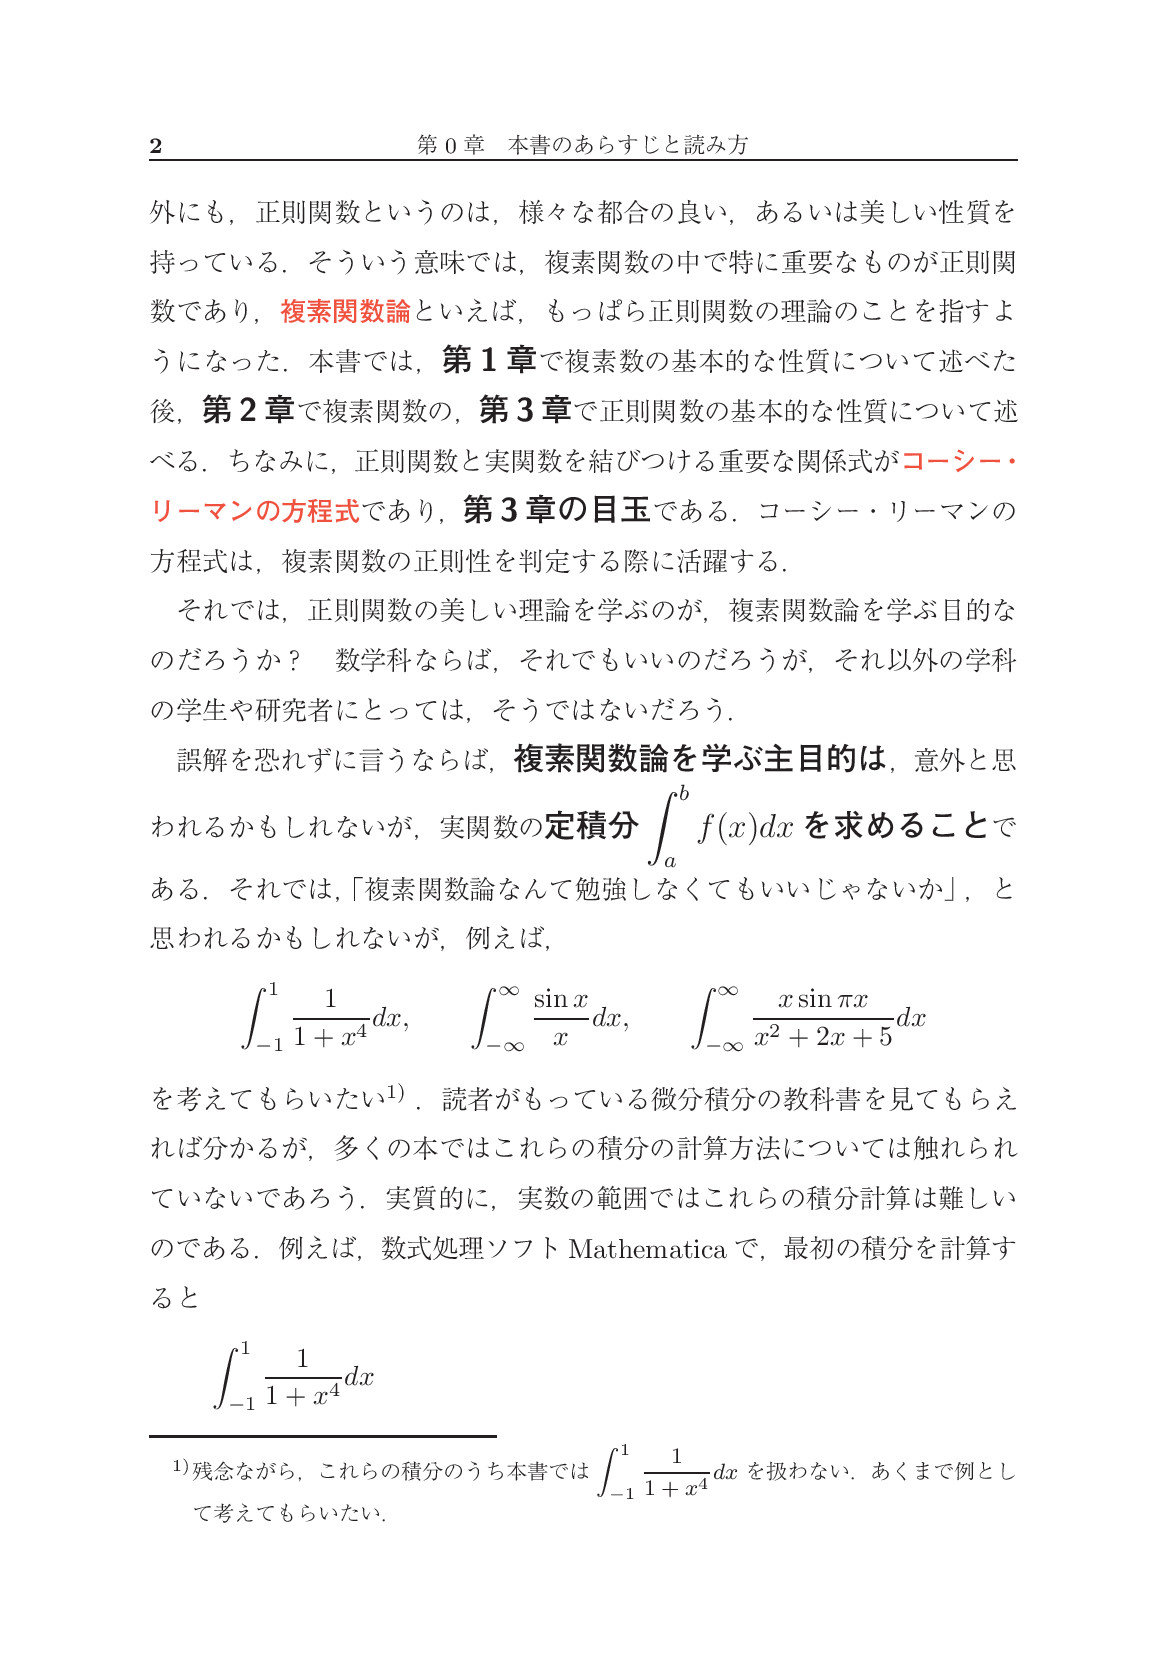 2 第 0 章　本書のあらすじと読み方
外にも，正則関数というのは，様々な都合の良い，あるいは美しい性質を
持っている．そういう意味では，複素関数の中で特に重要なものが正則関
数であり，複素関数論といえば，もっぱら正則関数の理論のことを指すよ
うになった．本書では，第 1 章で複素数の基本的な性質について述べた
後，第 2 章で複素関数の，第 3 章で正則関数の基本的な性質について述
べる．ちなみに，正則関数と実関数を結びつける重要な関係式がコーシー・
リーマンの方程式であり，第 3 章の目玉である．コーシー・リーマンの
方程式は，複素関数の正則性を判定する際に活躍する．
それでは，正則関数の美しい理論を学ぶのが，複素関数論を学ぶ目的な
のだろうか？　数学科ならば，それでもいいのだろうが，それ以外の学科
の学生や研究者にとっては，そうではないだろう．
誤解を恐れずに言うならば，複素関数論を学ぶ主目的は，意外と思
われるかもしれないが，実関数の定積分 $\int_a^b f(x)dx$ を求めることで
ある．それでは，「複素関数論なんて勉強しなくてもいいじゃないか」，と
思われるかもしれないが，例えば，
$\int_{-1}^{1} \frac{1}{1+x^4}dx, \quad \int_{-\infty}^{\infty} \frac{\sin x}{x}dx, \quad \int_{-\infty}^{\infty} \frac{x \sin \pi x}{x^2+2x+5}dx$
を考えてもらいたい1)．読者がもっている微分積分の教科書を見てもらえ
れば分かるが，多くの本ではこれらの積分の計算方法については触れられ
ていないであろう．実質的に，実数の範囲ではこれらの積分計算は難しい
のである．例えば，数式処理ソフト Mathematica で，最初の積分を計算す
ると
$\int_{-1}^{1} \frac{1}{1+x^4}dx$
1)残念ながら，これらの積分のうち本書では $\int_{-1}^{1} \frac{1}{1+x^4}dx$ を扱わない．あくまで例とし
て考えてもらいたい．